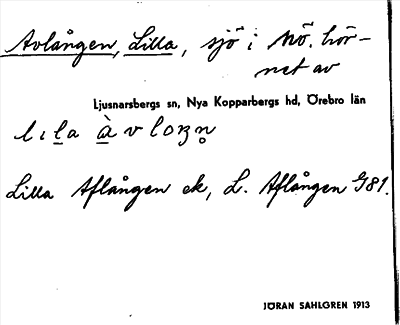 Avlången, Lilla, sjö i NÖ. hör-
net av
Ljusnarsbergs sn, Nya Kopparbergs hd, Örebro län
Lilla Aflången ek, L. Aflången G81.
JÖRAN SAHLGREN 1913